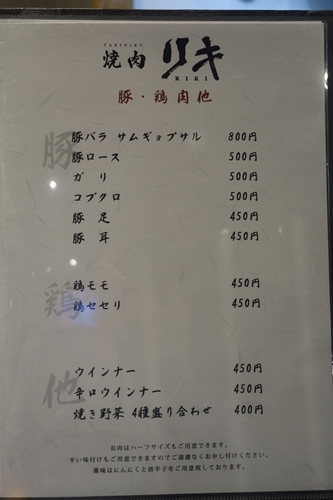 YAKINIKU
焼肉 リキ
RIKI
豚・鶏肉他
豚
豚バラ サムギョプサル 800円
豚ロース 500円
ガリ 500円
コブクロ 500円
豚足 450円
豚耳 450円
鶏
鶏モモ 450円
鶏セセリ 450円
他
ウインナー 450円
辛口ウインナー 450円
焼き野菜 4種盛り合わせ 400円
お肉はハーフサイズもご用意できます。
辛い味付けもご用意できますのでご遠慮なくお申し付けください。
薬味はにんにくと唐辛子をご用意致しております。